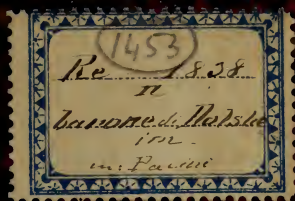 1453
Re 1838
n
Barone di Dolshe
im.
m: Pacini